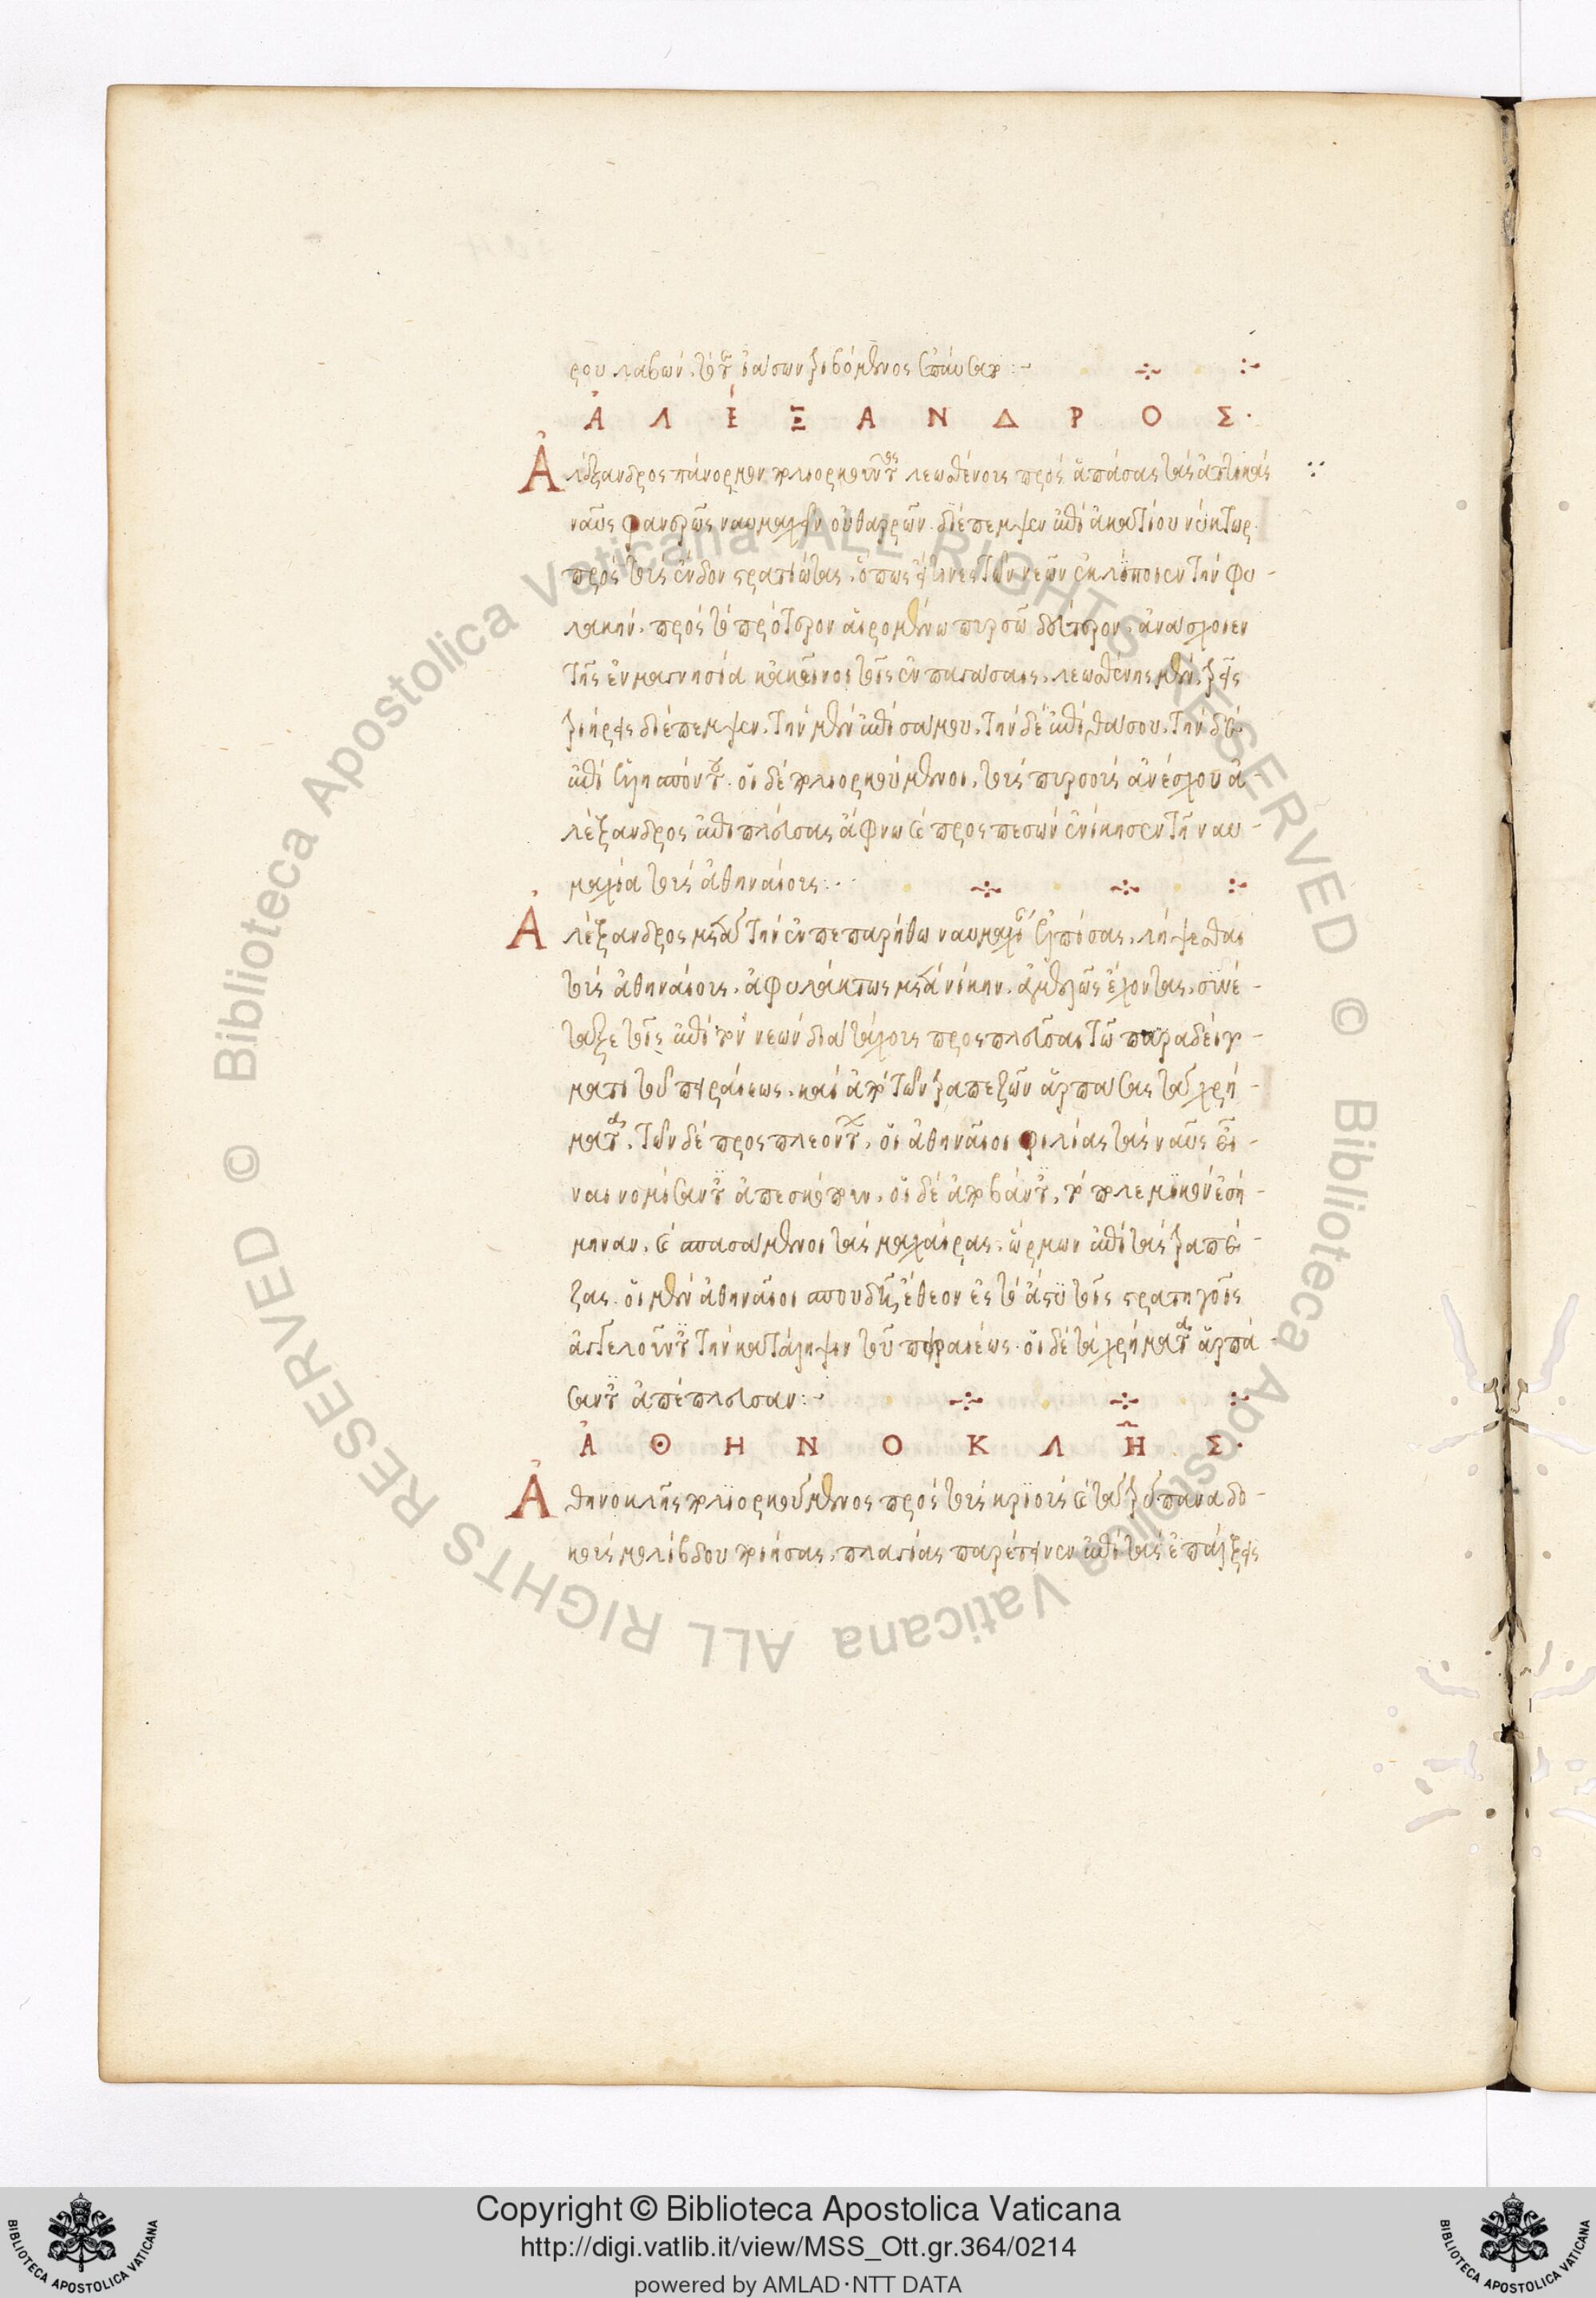 ρου λαβών. τοῦτο ἰάσων τριβόμενος ἐπαύσατο:~
ἈΛΈΞΑΝΔΡΟΣ·
Ἀλέξανδρος πάνορμον πολιορκοῦντος λεωσθένους πρὸς ἁπάσας τὰς ἀττικὰς
ναῦς φανερῶς ναυμαχεῖν οὐ θαρρῶν. διέπεμψεν ἐπὶ ἀκατίου νύκτωρ
πρὸς τοὺς ἔνδον στρατιώτας, ὅπως εἴ τινες τῶν νεῶν ἐκλίποιεν τὴν φυ-
λακήν. πρὸς τὸ πρότερον αἰρομένω πυρσῶ δεύτερον, ἀνάσχοιεν
τῆς ἐν μαγνησία κἀκεῖνοι τοῖς ἐν παγάσαις. λεωσθένης μὲν, τρεῖς
τριήρεις διέπεμψεν. τὴν μὲν ἐπὶ σάμου. τὴν δὲ ἐπὶ θάσου. τὴν δὲ
ἐπὶ ἑλλήσποντον. οἱ δὲ πολιορκούμενοι, τοὺς πυρσοὺς ἀνέσχον ἀ-
λέξανδρος ἐπιπλεύσας ἄφνω καὶ προσπεσὼν ἐνίκησεν τῆ ναυ-
μαχία τοὺς ἀθηναίους:
Ἀλέξανδρος μετὰ τὴν ἐν πεπαρήθω ναυμαχίαν ἐλπίσας, λήψεσθαι
τοὺς ἀθηναίους. ἀφυλάκτως μετὰ νίκην. ἀμελῶς ἔχοντας, συνέ-
ταξε τοῖς ἐπὶ τῶν νεῶν διὰ τάχους προσπλεῦσαι τῶ παραδείγ-
ματι τοῦ πειραίεως. καὶ ἀπὸ τῶν τραπεζῶν ἁρπάσας τὰ χρή-
ματα. τῶν δὲ προσπλεόντων, οἱ ἀθηναῖοι φιλίας τὰς ναῦς εἶ-
ναι νομίσαντες ἀπεσκόπουν. οἱ δὲ ἀποβάντες, τὸ πολεμικὸν ἐσή-
μηναν. καὶ σπασάμενοι τὰς μαχαίρας. ὥρμων ἐπὶ τὰς τραπέ-
ζας. οἱ μὲν ἀθηναῖοι σπουδῆ ἔθεον ἐς τὸ ἄστυ τοῖς στρατηγοῖς
ἀγγελοῦντες τὴν κατάληψιν τοῦ πειραιέως. οἱ δὲ τὰ χρήματα ἁρπά
σαντες ἀπέπλευσαν:~
ἈΘΗΝΟΚΛΗ͂Σ·
Ἀθηνοκλῆς πολιορκούμενος πρὸς τοὺς κριοὺς καὶ τὰ τρύπανα δο-
κοὺς μολίβδου ποιήσας, πλαγίας παρέτεινεν ἐπὶ τὰς ἐπάλξεις
Copyright © Biblioteca Apostolica Vaticana
http://digi.vatlib.it/view/MSS_Ott.gr.364/0214
powered by AMLAD·NTT DATA